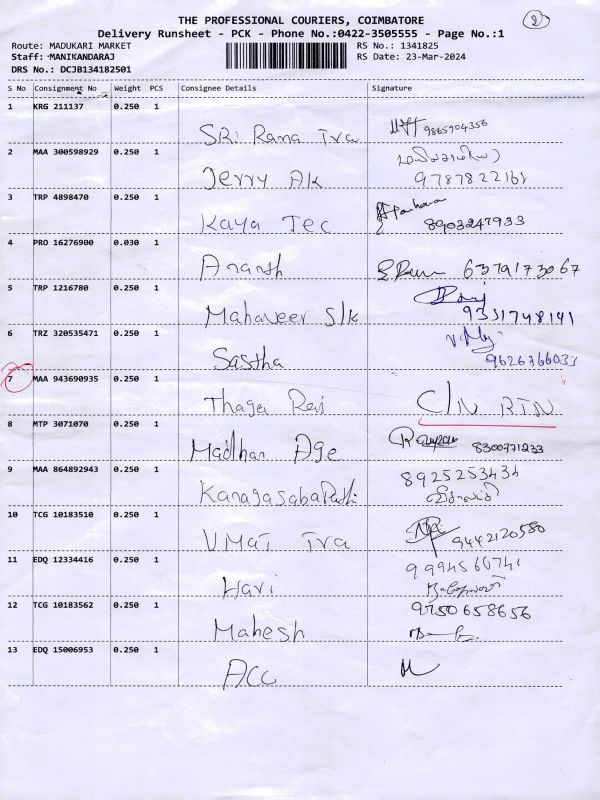 THE PROFESSIONAL COURIERS, COIMBATORE
Delivery Runsheet - PCK - Phone No.:0422-3505555 - Page No.:1
Route: MADUKARI MARKET
RS No.: 1341825
Staff: MANIKANDARAJ
RS Date: 23-Mar-2024
DRS No.: DCJB134182501
S No Consignment No Weight PCS Consignee Details Signature
1 KRG 211137 0.250 1
SRi Rama Tra 9865904356
2 MAA 300598929 0.250 1
Jerry Ak 9787822161
3 TRP 4898470 0.250 1
Kaya Tec 8903247933
4 PRO 16276900 0.030 1
Ananth 6379173067
5 TRP 1216780 0.250 1
Mahaveer Slk 9331748141
6 TRZ 320535471 0.250 1
Sastha 9626766033
7 MAA 943690935 0.250 1
Thaga Ravi C/N RTN
8 MTP 3071070 0.250 1
Madhan Age 8300771233
9 MAA 864892943 0.250 1
Kanagasabapathi 8925253434
10 TCG 10183510 0.250 1
UMAI Tra 9442120580
11 EDQ 12334416 0.250 1
Hari 9994566741
12 TCG 10183562 0.250 1
Mahesh 9750658656
13 EDQ 15006953 0.250 1
Acc